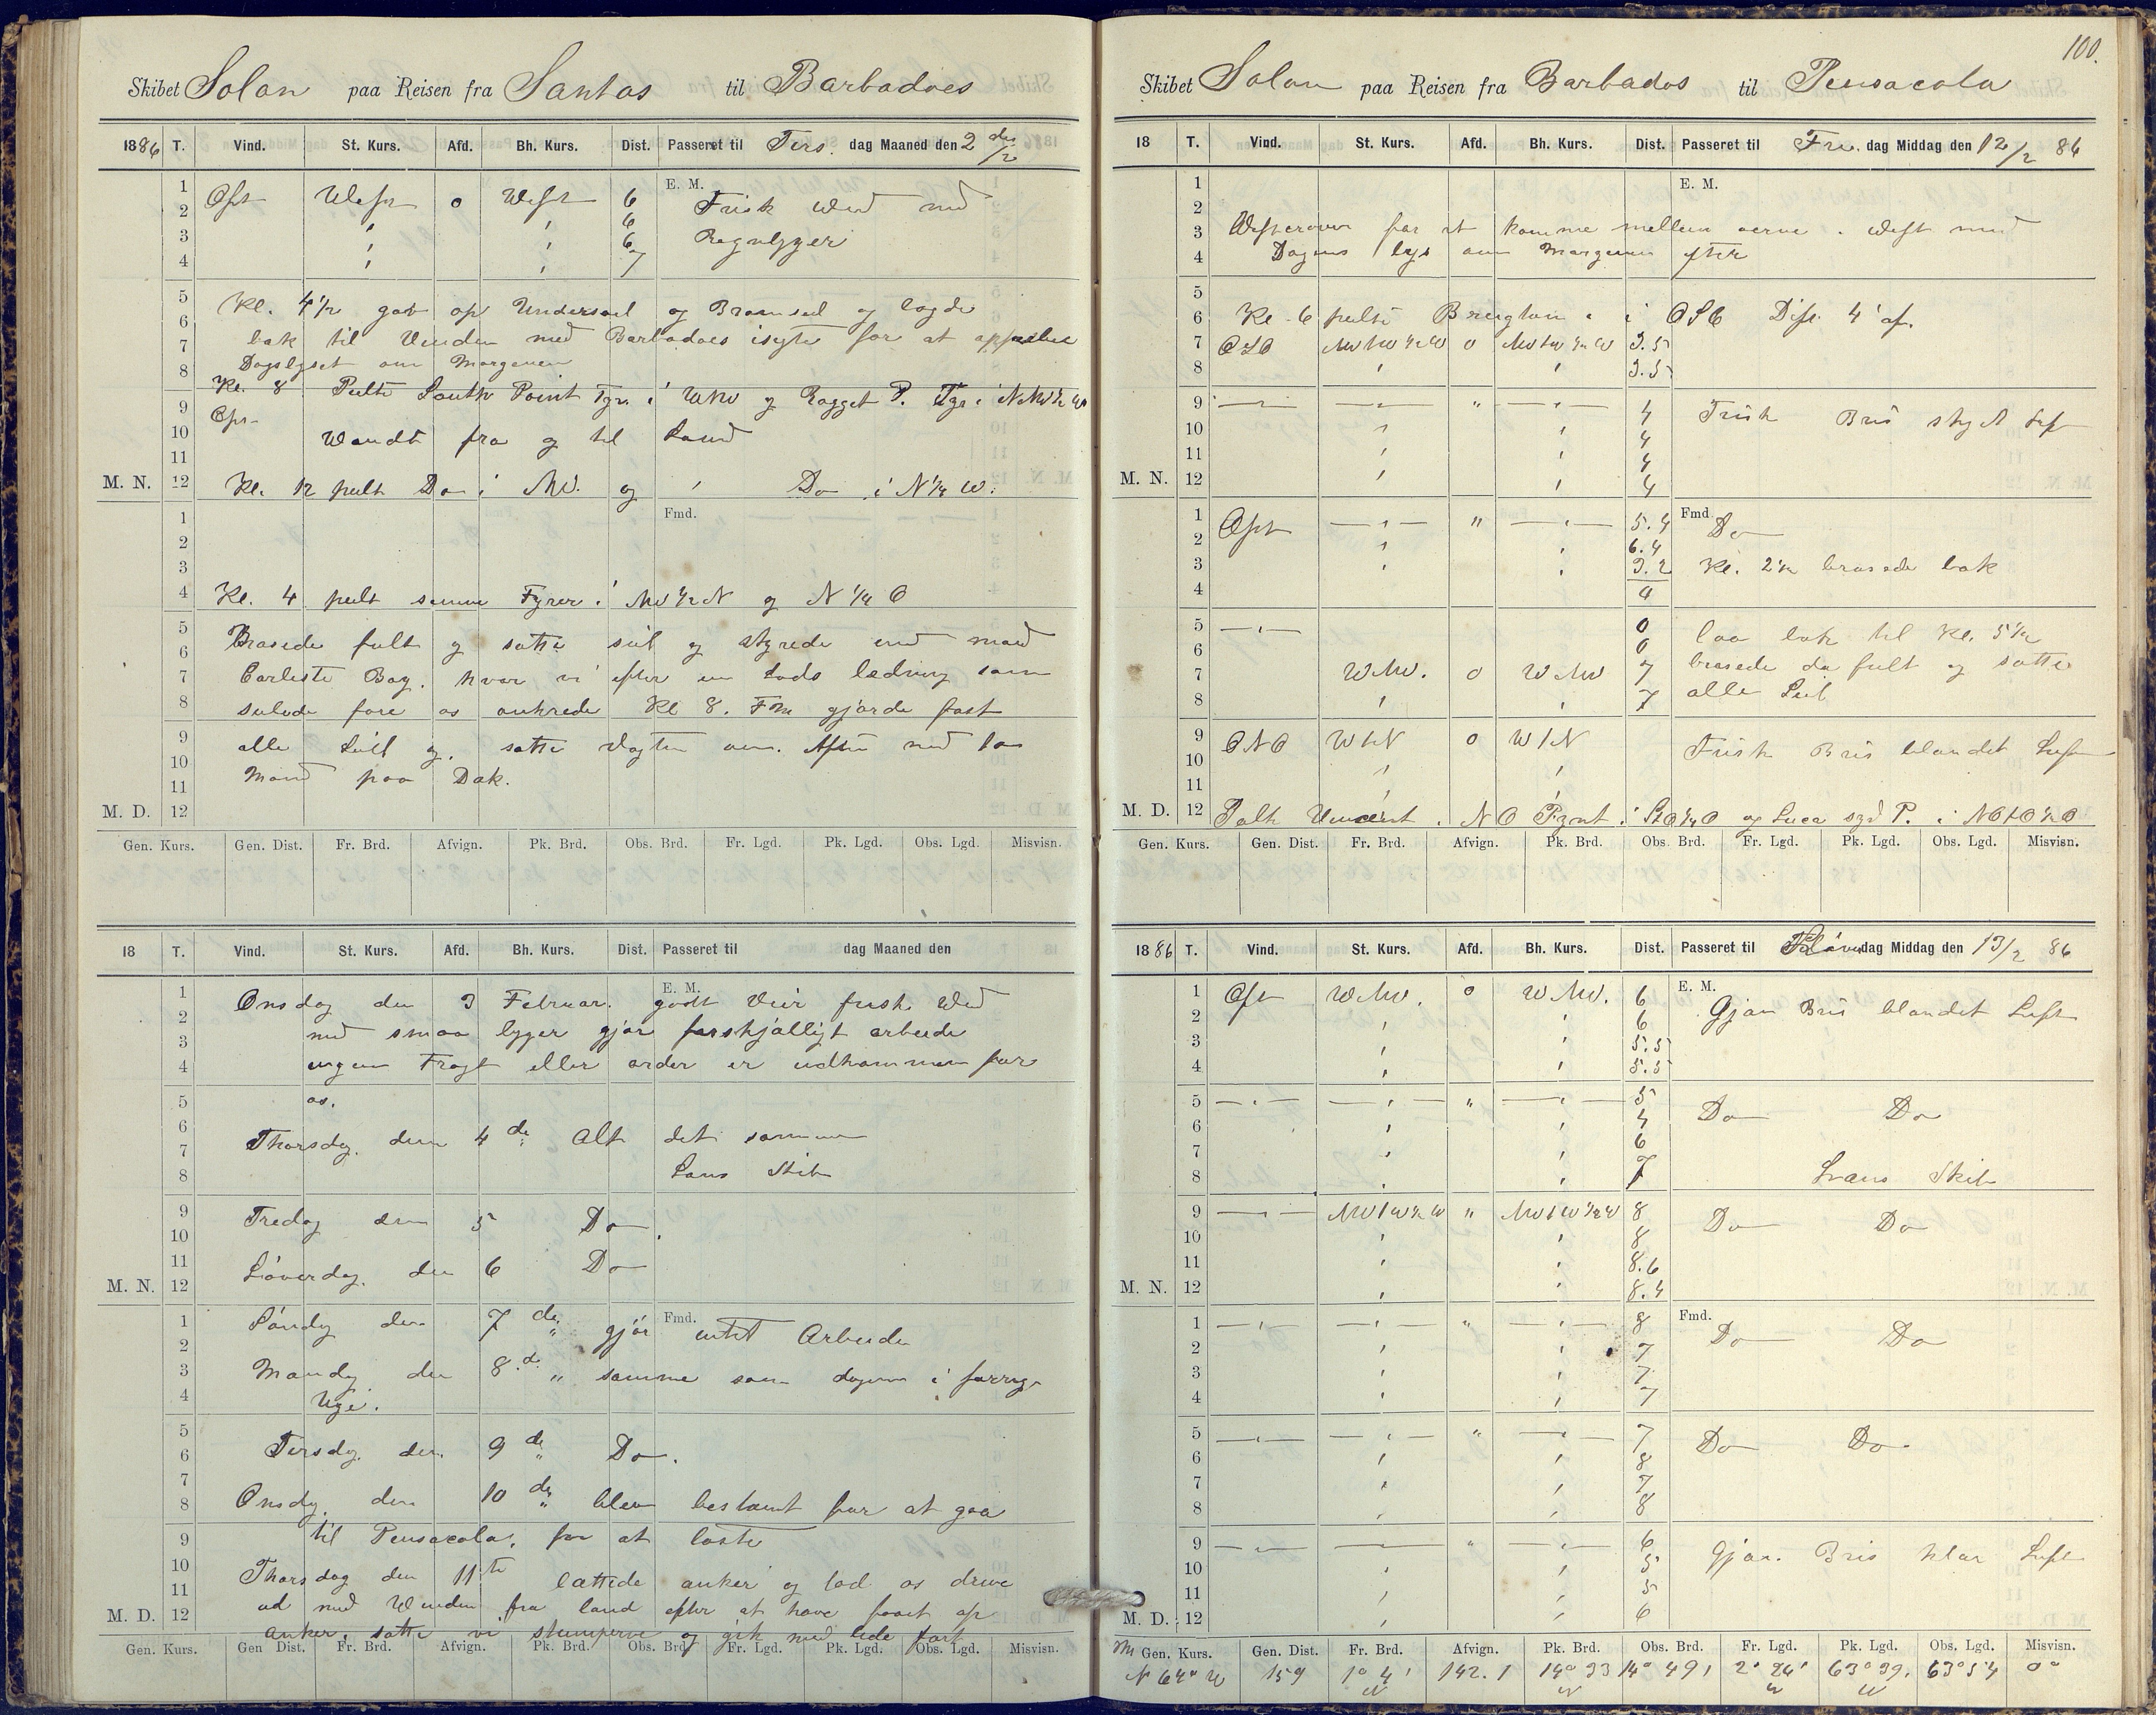 Skibet Solon paa Reisen fra Santos til Barbadoes
1886 T. Vind. St. Kurs. Afd. Bh. Kurs. Dist. Passeret til Tirs. dag Maaned den 2 den/2
E. M.
1 Ost West o West 6 Frisk Wind med
2 " " 6
3 " " 6 Regnbyger
4 " " 7
5 Kl. 4 1/2 gav op Underseil og Bramseil og lagde
6 bak til Vinden med Barbadoes isigte for at
7 Dagslyset om Morgenen
8 Kl. 8 Peilte South Point Fyr. i WNW og Ragget P. Fyr i NNW 1/2 W
9 Ost
10 Wendt fra og til Land
11
M. N. 12 Kl. 12 peilt Do i NW. og " Do i N 1/4 W.
Fmd.
1
2
3
4 Kl. 4 peilt samme Fyrer i NW 1/2 N og N 1/4 O
5 Brasede fult og satte seil og styrede ind mod
6
7 Carlisle Bay. hvor vi efter en Lods ledning som
8 seilede fore os ankrede Kl 8. Fm gjorde fast
9 alle Seil og satte Vagten om. Aften med en
10 Mand paa Dæk.
11
M. D. 12
Gen. Kurs. Gen. Dist. Fr. Brd. Afvign. Pk. Brd. Obs. Brd. Fr. Lgd. Pk. Lgd. Obs. Lgd. Misvisn.
18 T. Vind. St. Kurs. Afd. Bh. Kurs. Dist. Passeret til dag Maaned den
E. M.
1 Onsdag den 3 Februar. godt Veir frisk Wind
2 med smaa byger gjør forskjælligt arbeide
3
4 ingen Fragt eller order er udkommen for
5 os.
6 Thorsdag. den 4 de Alt det samme
7
8 Læns Skib
9 Fredag den 5 Do
10
11 Løverdag. den 6 Do
M. N. 12
Fmd.
1 Søndag den 7 de " gjør intet Arbeide
2
3 Mandag den 8. de " samme som dagene i forrige
4 Uge.
5
6 Tirsdag. den 9 de " Do.
7
8 Onsdag. den 10 de " blev bestemt for at gaa
9 til Pensacola. for at laste
10 Thorsdag den 11te lættede anker og lod os drive
11 ud med Winden fra land efter at have faaet op
M. D. 12 anker, satte vi stumperne og gik med lide fart
Gen. Kurs. Gen Dist. Fr. Brd. Afvign. Pk. Brd. Obs. Brd. Fr. Lgd. Pk. Lgd. Obs. Lgd. Misvisn.
100.
Skibet Solon paa Reisen fra Barbados til Pensacola
18 T. Vind. St. Kurs. Afd. Bh. Kurs. Dist. Passeret til Fre. dag Middag den 12/2 86
E. M.
1
2
3 Westerover for at komme mellem øerne. West med
4 Dagens lys om Morgenen efter
5
6 Kl 6 peilte i OSO Dist 4' af.
7 OSO NW t W 1/2 W o NW t W 1/2 W 3.5
8 " " 3.5
9 " " " " 4 Frisk Bris skyet Luft
10 " " 4
11 " " 4
M. N. 12 " " 4
Fmd.
1 Ost " " " 5.4 Do
2 " " 6.4
3 " " 3.2 Kl. 2 1/2 brasede bak
4 0
5 " 0 laa bak til Kl. 5 1/2
6 0
7 WNW. o WNW 7 brasede da fult og satte
8 " " 7 alle Seil
9 ONO W t N o W t N Frisk Bris blandet Luft
10 " "
11 " "
M. D. 12 Peilte Vincent. NO Pynt i og Lucia syd P. i NO t O 1/2 O
Gen. Kurs. Gen. Dist. Fr. Brd. Afvign. Pk. Brd. Obs. Brd. Fr. Lgd. Pk. Lgd. Obs. Lgd. Misvisn.
1886 T. Vind. St. Kurs. Afd. Bh. Kurs. Dist. Passeret til Løverdag Middag den 13/2 86
E. M.
1 Ost WNW. o WNW. 6 Gjæv Bris blandet Luft
2 " " 6
3 " " 5.5
4 " " 5.5
5 " " " " 5 Do Do
6 " " 4
7 " " 6
8 " " 7 Læns Skib
9 " NW t W 1/2 W " NW t W 1/2 W 8 Do Do
10 " " 8
11 " " 8.6
M. N. 12 " " 8.4
Fmd.
1 " " " " 8 Do Do
2 " " 7
3 " " 7
4 " " 7
5 " " " " 7 Do Do
6 " " 8
7 " " 7
8 " " 8
9 " " " " 6 Gjæv. Bris klar Luft
10 " " 5
11 " " 5
M. D. 12 " " 6
Gen. Kurs. Gen. Dist. Fr. Brd. Afvign. Pk. Brd. Obs. Brd. Fr. Lgd. Pk. Lgd. Obs. Lgd. Misvisn.
N 64° W 159 1° 4' N 142.1 14° 33 N 14° 49' 2° 24' W 63° 39. W 63° 54 0°